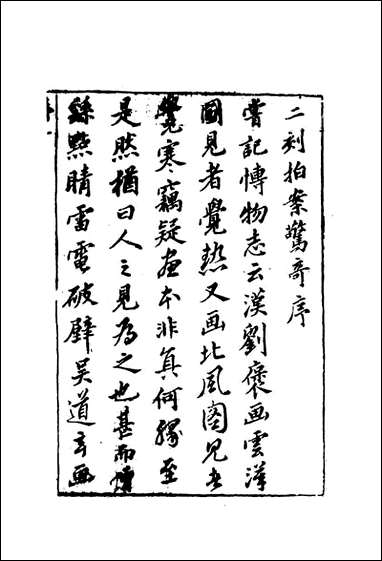 二刻拍案驚奇序
嘗記博物志云漢劉褒画雲漢
圖見者覺熱又画北風图見者
覺寒竊疑画本非真何縁至
是然猶曰人之見為之也甚而僧
繇點睛雷電破壁吴道玄画